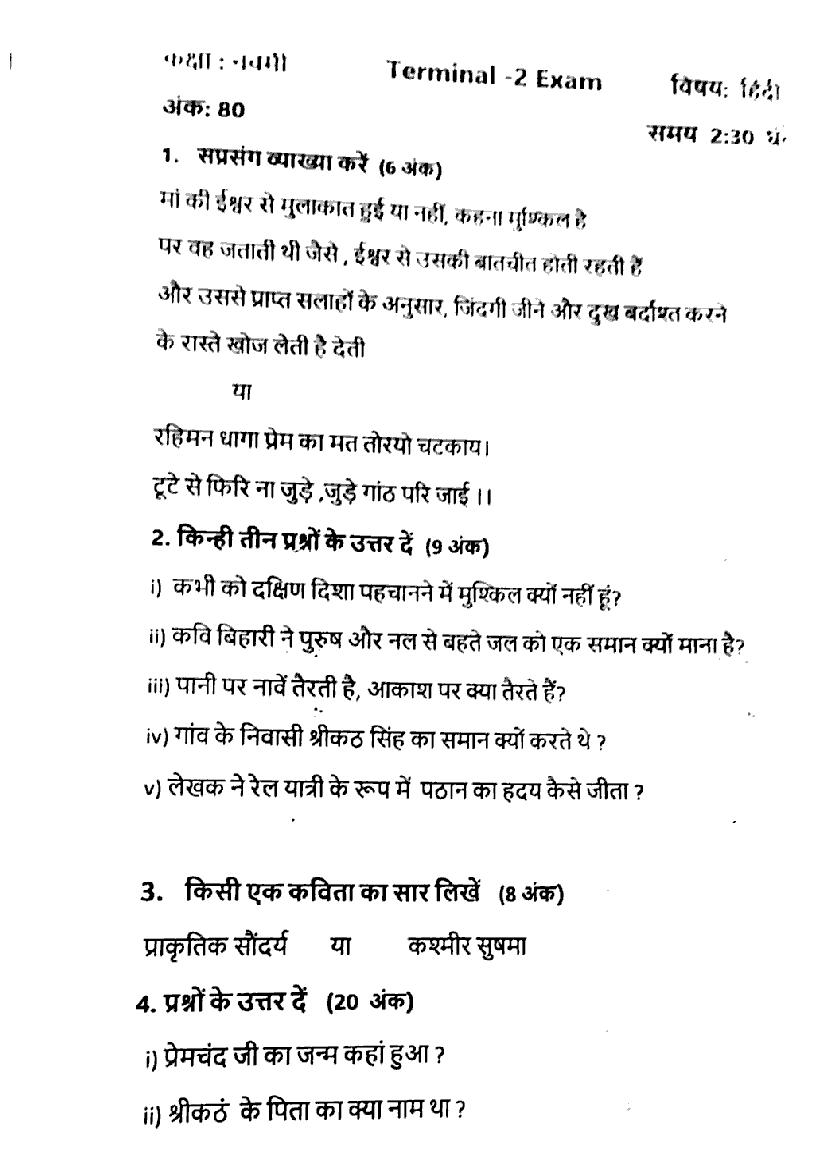 कक्षा : नवमी Terminal -2 Exam विषय: हिंदी
अंक: 80
समय 2:30
1. सप्रसंग व्याख्या करें (6 अंक)
मां की ईश्वर से मुलाकात हुई या नहीं, कहना मुश्किल है
पर वह जताती थी जैसे , ईश्वर से उसकी बातचीत होती रहती हैं
और उससे प्राप्त सलाहों के अनुसार, जिंदगी जीने और दुख बर्दाश्त करने
के रास्ते खोज लेती है देती
या
रहिमन धागा प्रेम का मत तोरयो चटकाय।
टूटे से फिरि ना जुड़े ,जुड़े गांठ परि जाई ।।
2. किन्ही तीन प्रश्नों के उत्तर दें (9 अंक)
i) कभी को दक्षिण दिशा पहचानने में मुश्किल क्यों नहीं हूं?
ii) कवि बिहारी ने पुरुष और नल से बहते जल को एक समान क्यों माना है?
iii) पानी पर नावें तैरती है, आकाश पर क्या तैरते हैं?
iv) गांव के निवासी श्रीकठ सिंह का समान क्यों करते थे ?
v) लेखक ने रेल यात्री के रूप में पठान का हृदय कैसे जीता ?
3. किसी एक कविता का सार लिखें (8 अंक)
प्राकृतिक सौंदर्य या कश्मीर सुषमा
4. प्रश्नों के उत्तर दें (20 अंक)
i) प्रेमचंद जी का जन्म कहां हुआ ?
ii) श्रीकठं के पिता का क्या नाम था ?